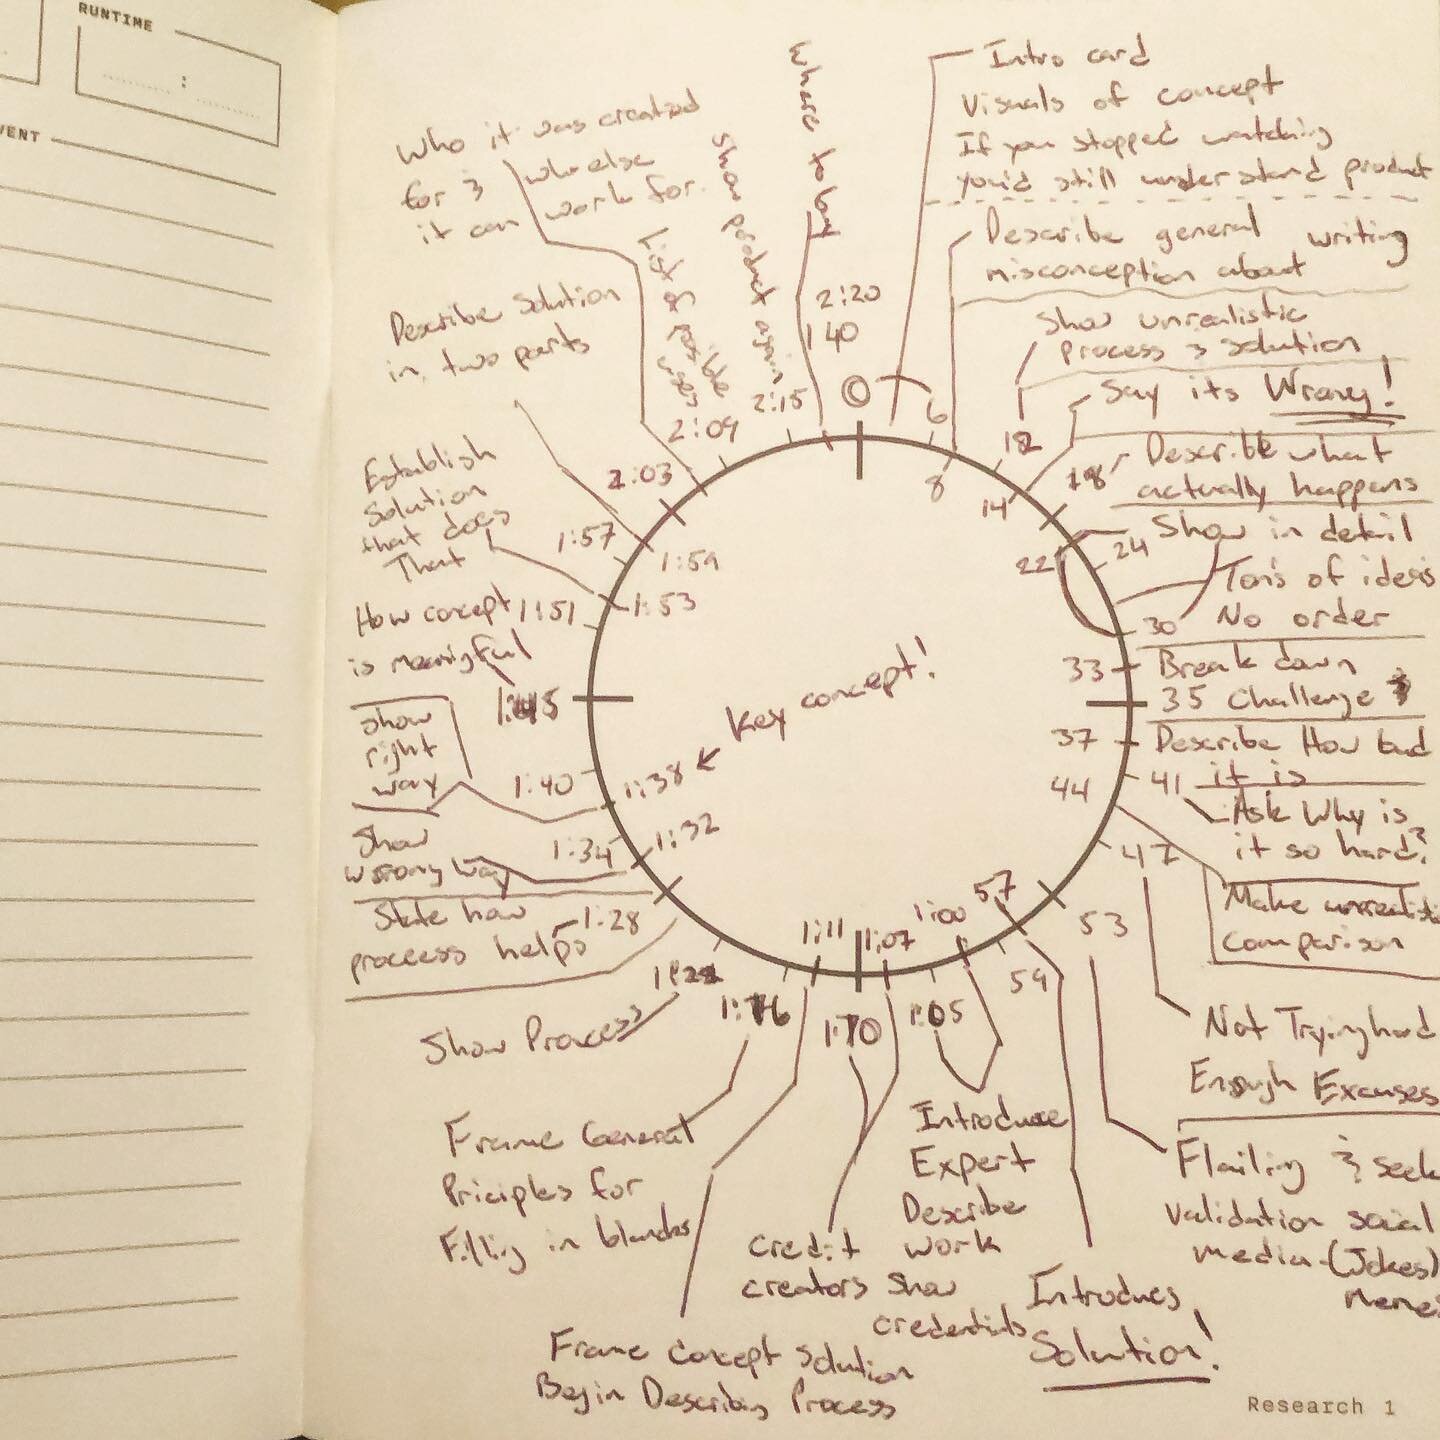 RUNTIME
:
VENT
Intro card
Visuals of concept
If you stopped watching
you'd still understand product
Describe general writing
misconception about
Show unrealistic
process & solution
Say its Wrong!
Describe what
actually happens
Show in detail
Tons of ideas
No order
Break down
35 Challenge
Describe How bad
it is
Ask Why is
it so hard?
Make
comparison
Not Trying hard
Enough Excuses
Flailing & seek
validation social
media (Jokes)
Introduces
Solution!
Introduce
Expert
Describe
work
Show
credentials
credit
creators
Frame Concept Solution
Begin Describing Process
Frame General
Priciples for
Filling in blanks
Show Process
State how
process helps
Show
wrong way
Show
right
way
How concept
is meanigful
Establish
Solution
that does
That
Describe Solution
in two parts
Who it was created
for &
it can
who else
work for.
List of possible
uses
Show product again
Where to buy
2:20
1 40
0
6
8
12
14
18
22
24
30
33
37
41
44
47
53
57
59
1:00
1:05
1:07
1:11
1:28
1:32
1:34
1:38
1:40
1:45
1:51
1:53
1:57
1:59
2:03
2:09
2:15
Key concept!
Research 1